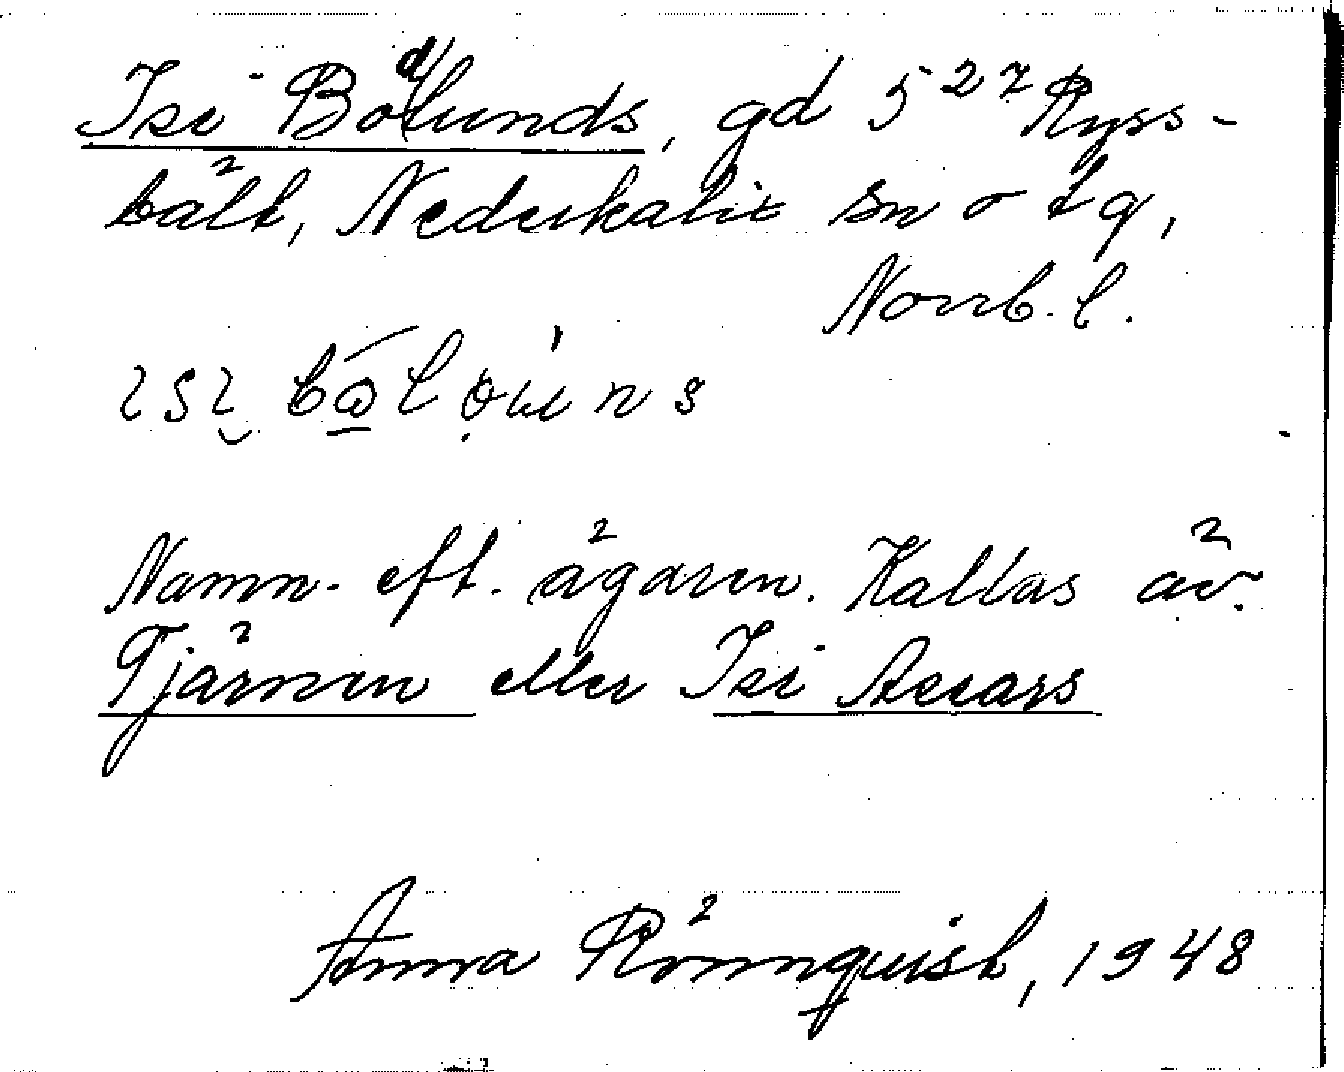 Isi Bolunds, gd 5²⁷ Ryss-
bält, Nederkalix sn o tg,
Norrb. l.
Namn. eft. ägaren. Kallas äv.
Tjärnen eller Isi Ascars
Anna Rönnquist, 1948